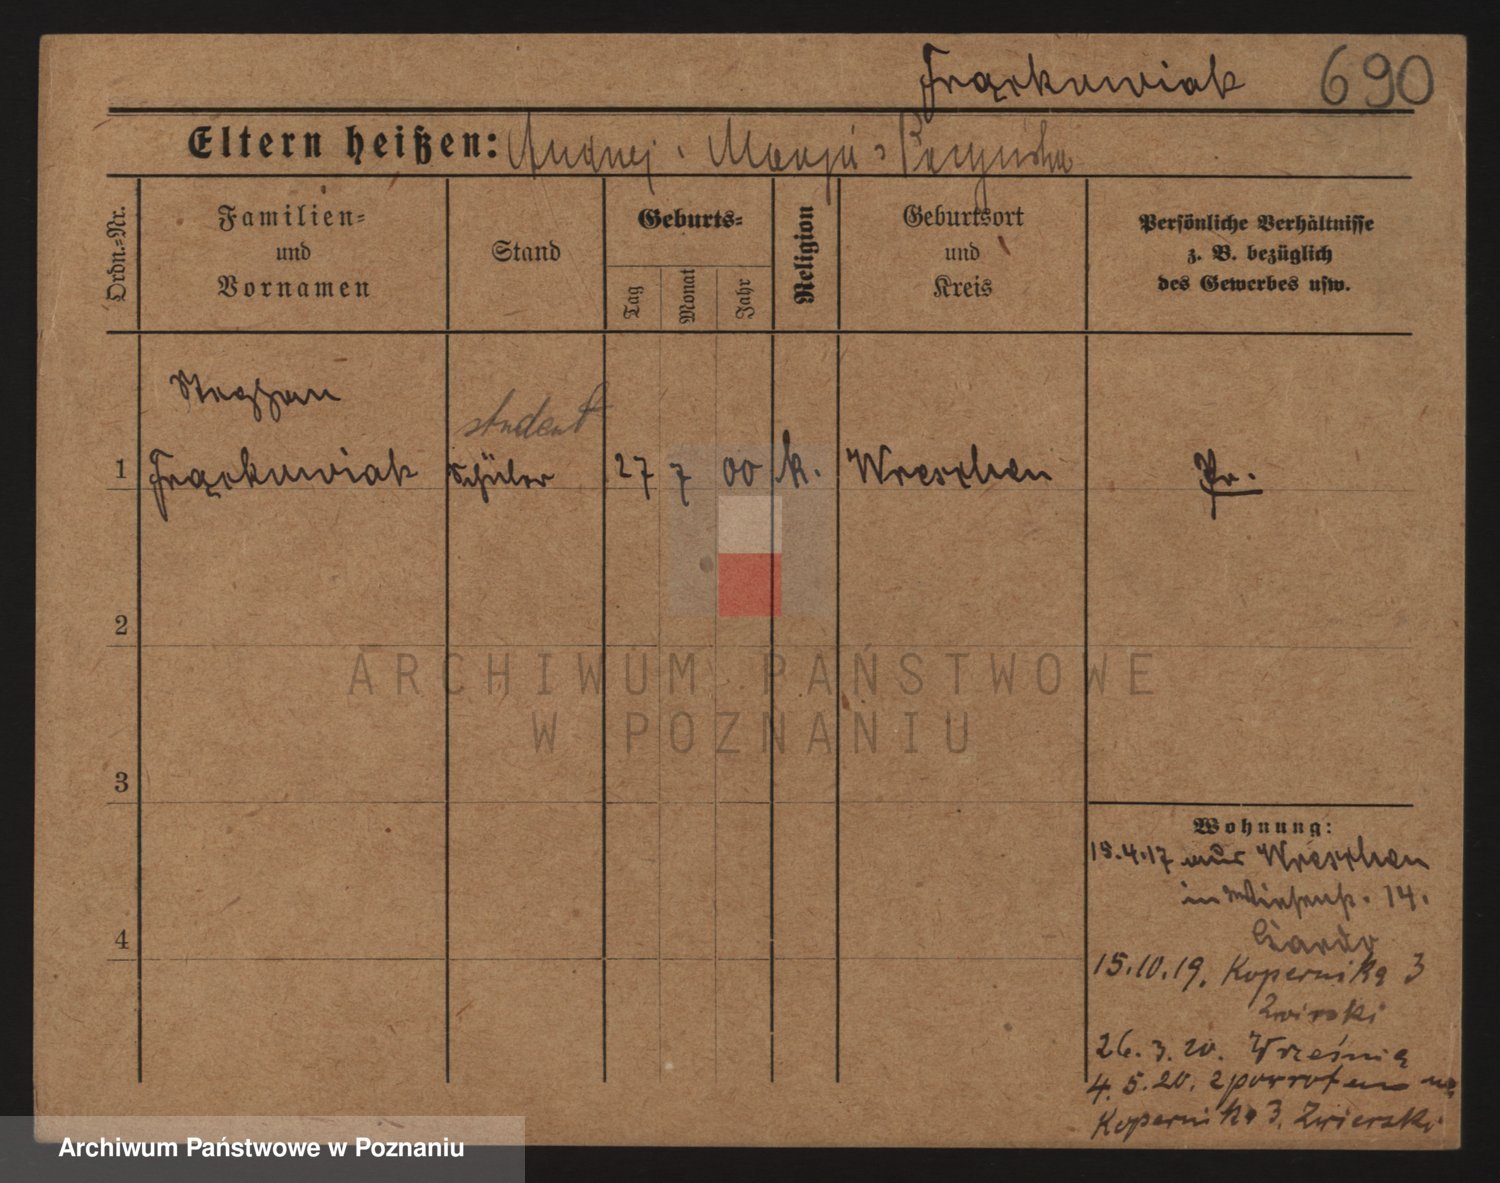 Frąckowiak 690
Eltern heißen: Andrzej i Marja z
Ordn.=Nr.
Familien=
und
Vornamen
Stand
Geburts=
Tag
Monat
Jahr
Religion
Geburtsort
und
Kreis
Persönliche Verhältnisse
z. B. bezüglich
des Gewerbes usw.
Stephan
student
1 Frąckowiak Schüler 27 7 00 k. Wreschen Pr.
2
3
4
Wohnung:
15.4.17 aus Wreschen
in 14.
15.10.19. Kopernika 3
Zwirski
26.3.20. Wrześnią
4.5.20. zpowrotem na
Kopernika 3, Zwierski
ARCHIWUM PAŃSTWOWE
W POZNANIU
Archiwum Państwowe w Poznaniu